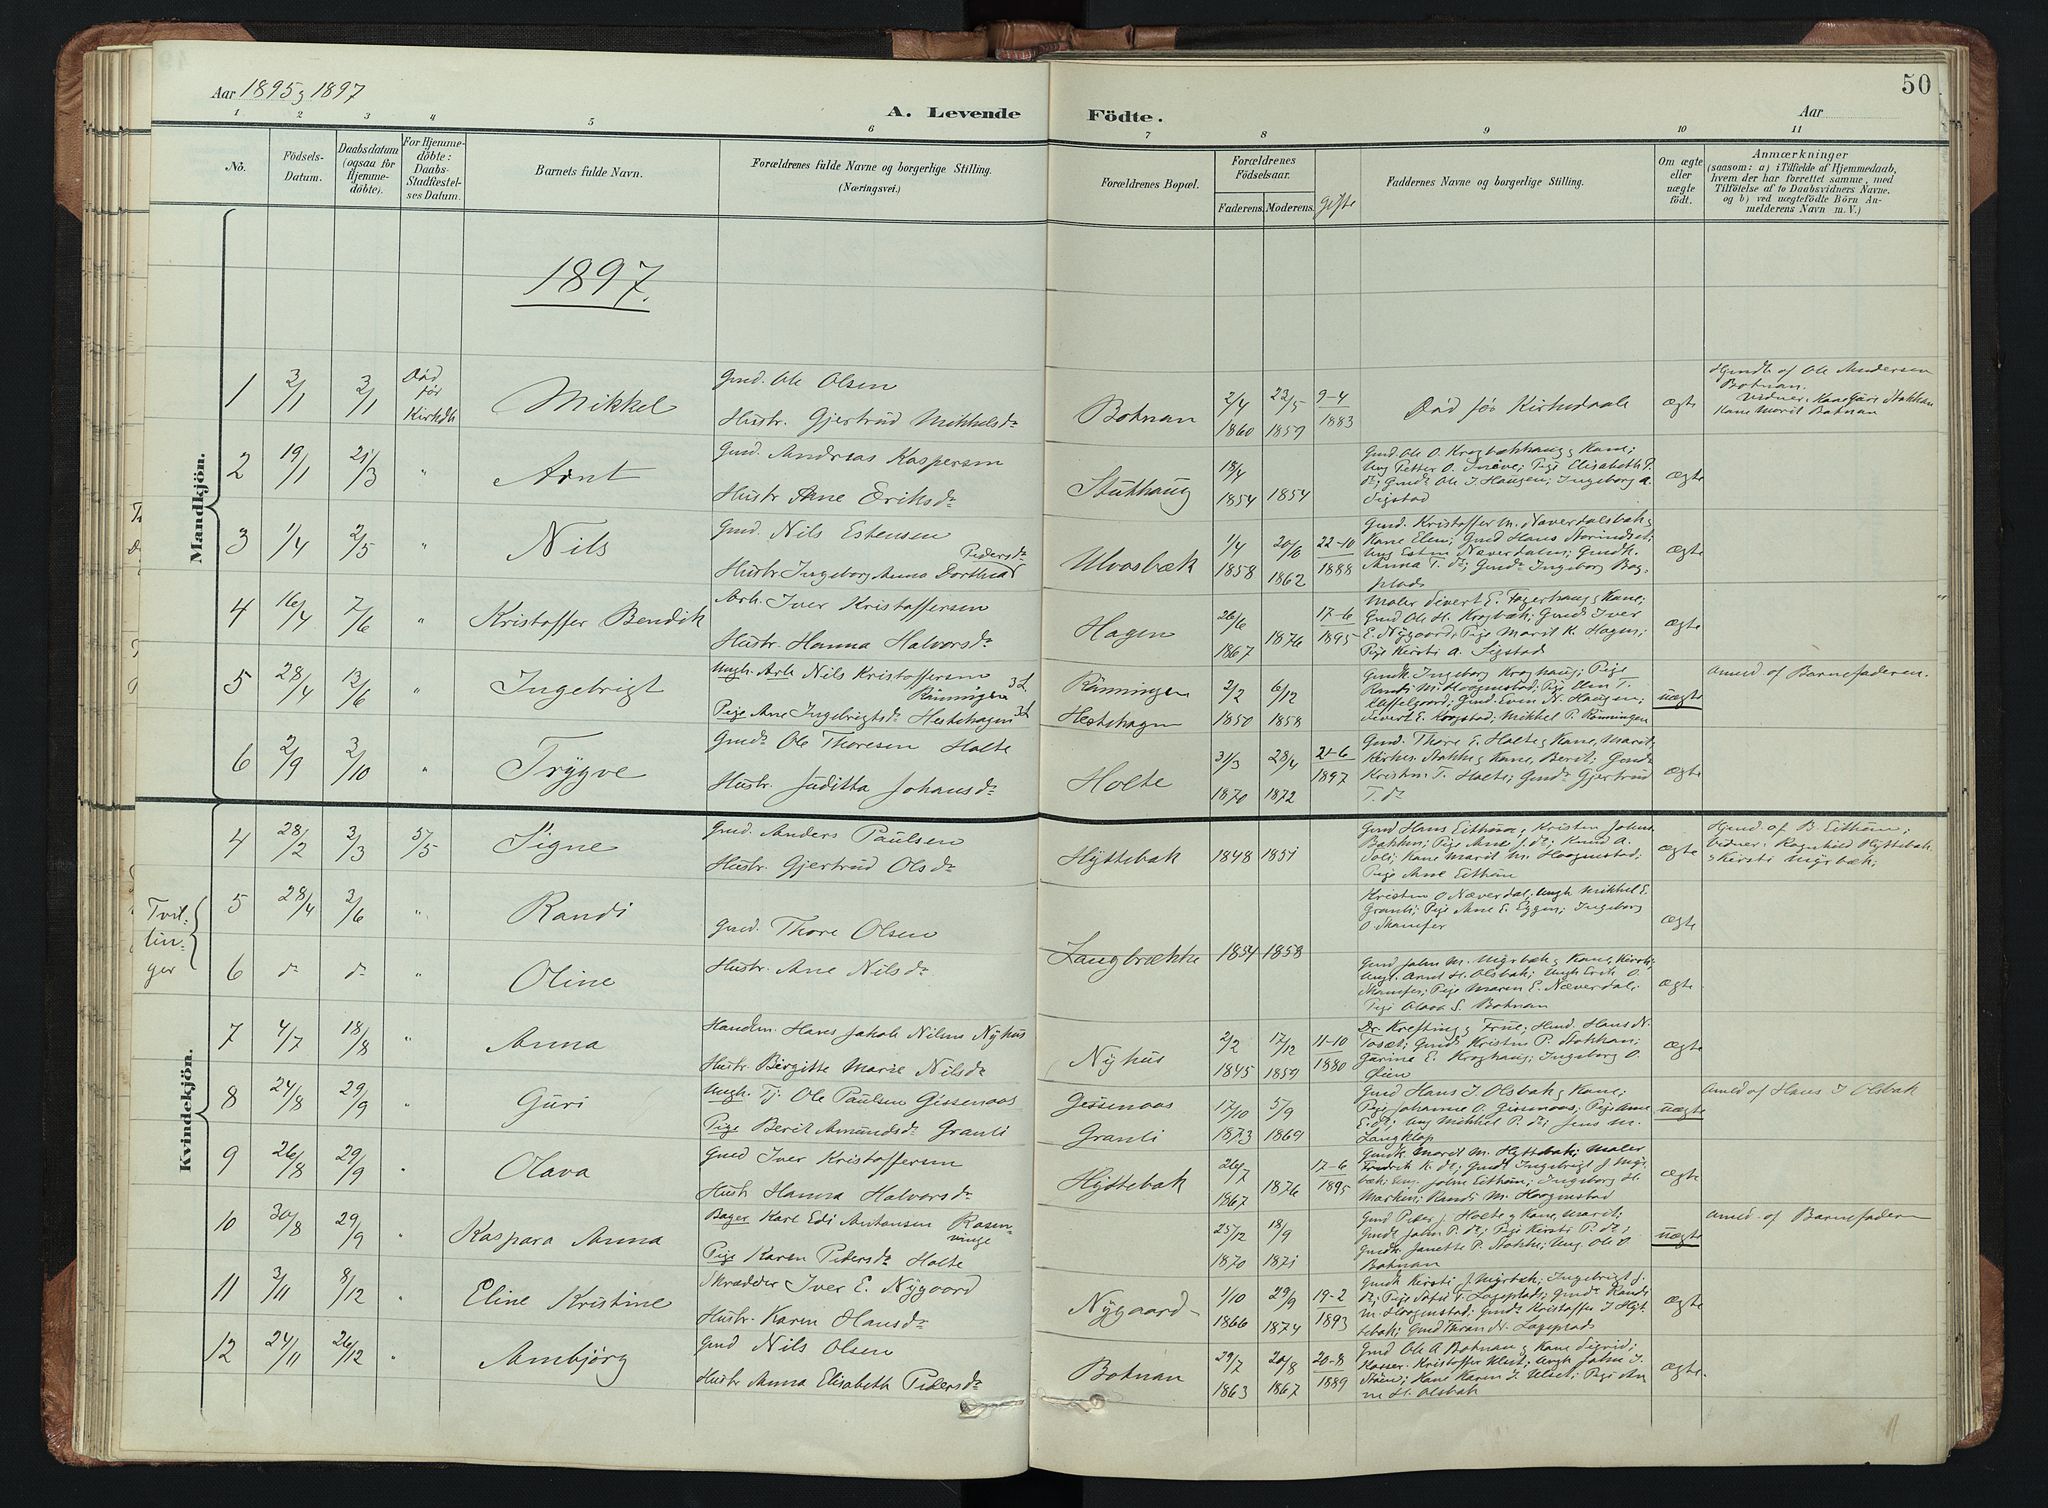 Aar 1895 & 1897
A. Levende
Födte.
Aar
50
1 2 3 4 5 6 7 8 9 10 11
No.
Födsels-
Datum.
Daabsdatum
(ogsaa for
Hjemme-
döbte).
For Hjemme-
döbte:
Daabs-
Stadfæstel-
ses Datum.
Barnets fulde Navn.
Forældrenes fulde Navne og borgerlige Stilling.
(Næringsvei.)
Forældrenes Bopæl.
Forældrenes
Födselsaar.
Faderens. Moderens. Gifte
Faddernes Navne og borgerlige Stilling.
Om ægte
eller
uægte
födt.
Anmærkninger
(saasom: a) i Tilfælde af Hjemmedaab,
hvem der har forrettet samme, med
Tilföielse af to Daabsvidners Navne.
og b) ved uægtefödte Börn An-
melderens Navn m. V.)
Mandkjön.
1897.
1 2/1 3/1 Död
för
Kirkdb
Mikkel
Gmd. Ole Olsen
Hustr. Gjertrud Mikkelsdr
Botnan
2/4 1860 22/5 1859 9-4 1883
Död för Kirkedaab
ægte
Hjmdb af Ole Andersen
Botnan.
Vidner, Kane Guri Stokkan
Kane Marit Botnan
2 19/1 21/3 "
Arnt
Gmd. Andreas Kaspersen
Hustr Ane Eriksdr
Stubhaug
18/4 1854 1854
Gmd Ole O. Krogbækhaug & Kane;
Ung Petter O. Snöve; Pige Elisabeth P.
dr; Gmds Ole J. Haugen; Ingeborg A.
Sigstad
ægte
3 1/4 2/5 "
Nils
Gmd. Nils Estensen
Hustr Ingeborg Anna Dorthea Pedersdr
Ulvosbæk
1/4 1858 20/6 1862 22-10 1888
Gmd. Kristoffer M. Næverdalsbak &
Kane Elen; Gmd Hans Storindset;
Ung Esten Næverdalen; Gmdk.
Anna T. dr; Gmds Ingeborg Bog-
plads
ægte
4 16/4 7/6 "
Kristoffer Bendik
Arb. Iver Kristoffersen
Hustr. Hanna Halvorsdr
Hagen
26/6 1867 1876 17-6 1895
Maler Sivert E. Fagerhaug & Kane;
Gmd Ole H. Krogbæk; Gmds Iver
E. Nygaard; Pige Marit K. Hagen;
Pige Kirsti A. Sigstad
ægte
5 28/4 13/6 "
Ingebrigt
Ungk. Arb Nils Kristoffersen
Rönningen 3 L
Pige Ane Ingebrigtsdr Hestehagen 3 L
Rönningen
Hestehagen
2/2 1850 6/12 1858
Gmdk Ingeborg Kroghaug; Pige
Randi M. Hoogenstad; Pige Elen T.
Kleffelgaard; Gmd. Even N. Haugen;
Sivert E. Krogstad; Mikkel P. Rönningen
uægte
Anmd af Barnefaderen.
6 2/9 3/10 "
Trygve
Gmds Ole Thoresen Holte
Hustr. Juditta Johansdr
Holte
31/3 1870 28/4 1872 21-6 1897
Gmd. Thore E. Holte & Kane, Marit;
Kirkes. Stokke & Kane, Berit; Gmds
Kristen T. Holte; Gmds Gjertrud
T. dr
ægte
Kvindekjön.
4 28/2 3/3 5/5
Signe
Gmd. Anders Paulsen
Hustr. Gjertrud Olsdr
Hyttebak
1848 1851
Gmd Hans Eithun, Kristen Johns
Bakken; Pige Ane J. dr; Knud A.
Soli; Kane Marit M. Hoogenstad;
Pige Ane Eithun
ægte
Hjmd. af B. Eithun;
Vidner. Ragnhild Hyttebak
& Kirsti Myrbæk;
Tvil-
lin-
ger
5 28/4 3/6 "
Randi
Gmd. Thore Olsen
Hustr. Ane Nilsdr
Langbrække
1854 1858
Kristen O Næverdal; Ungk Mikkel E.
Granli; Pige Ane E. Eggen; Ingeborg
O. Stamfer
ægte
6 dr dr "
Oline
Gmd John M. Myrbæk & Kane, Kirsti;
Ung. Arnt H. Olsbak; Ungk Erik O.
Stamfer; Pige Maren E. Næverdal;
Pige Olava S. Botnan
ægte
7 4/7 18/8 "
Anna
Handlm. Hans Jakob Nilsen Nyhus
Hustr Birgitte Marie Nilsdr
Nyhus
2/2 1845 17/12 1859 11-10 1880
Dr. Krefting & Frue; Hmd. Hans N.
Toset; Gmds Kristen P. Stokkan;
Gurine E. Kroghaug; Ingeborg O.
Öien
ægte
8 24/8 29/9 "
Guri
Ungk. Tj. Ole Paulsen Gissenaas
Pige Berit Amundsdr Granli
Gissenaas
Granli
17/10 1873 5/9 1869
Gmd Hans J. Olsbak & Kane;
Pige Johanne O. Gissenaas; Pige Ane
E. dr; Ung Mikkel P. dr; Jens M.
Langklop
uægte
Anmd af Hans J Olsbak
9 26/8 29/9 "
Olava
Gmd Iver Kristoffersen
Hustr Hanna Halvorsdr
Hyttebak
26/7 1867 1876 17-6 1895
Gmdk Marit M. Hyttebak; Maler
Fredrik K. dr; Gmds Ingebrigt J. Myr-
bæk; Ung. John Eithun; Ingeborg H.
Marken; Randi M. Hoogenstad
ægte
10 30/8 29/9 "
Kaspara Anna
Bager Karl Edi Antonsen Rasen-
vinge
Pige Karen Pedersdr Holte
25/12 1870 18/9 1871
Gmd Peder J. Holte & Kane, Marit;
Gmds John P. dr; Pige Kirsti P. dr;
Gmdk Janette P. Stokke; Ung Ole O.
Botnan
uægte
Anmd. af Barnefaderen
11 3/11 8/12 "
Eline Kristine
Skrædder Iver E. Nygaard
Hustr. Karen Hansdr
Nygaard
1/10 1866 29/9 1874 19-2 1893
Gmdk Kirsti J. Myrbæk; Ingebrigt J.
dr; Pige Sofie T. Lageplads; Gmds Randi
M Hoogenstad; Gmds Kristoffer J Hyt-
tebak; Gmd Taran N. Lageplads
ægte
12 24/11 26/12 "
Ambjörg
Gmd Nils Olsen
Hustr Anna Elisabeth Pedersdr
Botnan
29/7 1863 20/8 1867 20-8 1889
Gmd Ole A Botnan & Kane Sigrid;
Kasser. Kristoffer Ulset; Ungk John J.
Stöen; Kane Karen J. Ulset; Pige An-
ne H. Olsbak
ægte